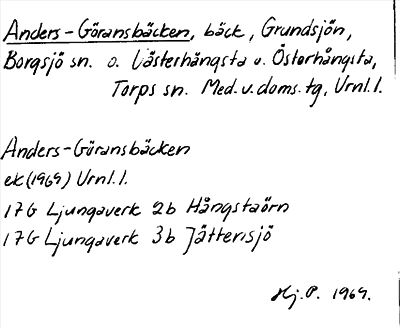 Anders-Göransbäcken, bäck, Grundsjön,
Borgsjö sn. o. Västerhångsta o. Österhångsta,
Torps sn. Med. v. doms. tg, Vrnl. l.
Anders-Göransbäcken
ek (1969) Vrnl. l.
17G Ljungaverk 2b Hångstaörn
17G Ljungaverk 3b Jättensjö
Hj. P. 1969.